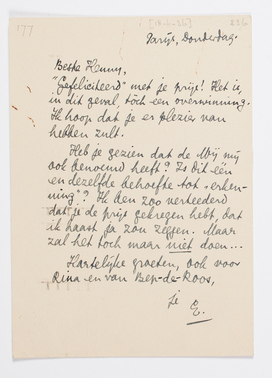 177
[18.6.36]
236
Parijs, Donderdag.
Beste Henny,
"Gefeliciteerd" met je prijs! Het is,
in dit geval, tòch een overwinning.
Ik hoop dat je er plezier van
hebben zult.
Heb je gezien dat de Wij mij
ook benoemd heeft? Is dit één
en dezelfde behoefte tot "erken-
ning"? Ik ben zoo verteederd
dat je de prijs gekregen hebt, dat
ik haast ja zou zeggen. Maar
zal het toch maar niet doen...
Hartelijke groeten, ook voor
Rina en van Bep-de-Roos,
je E.